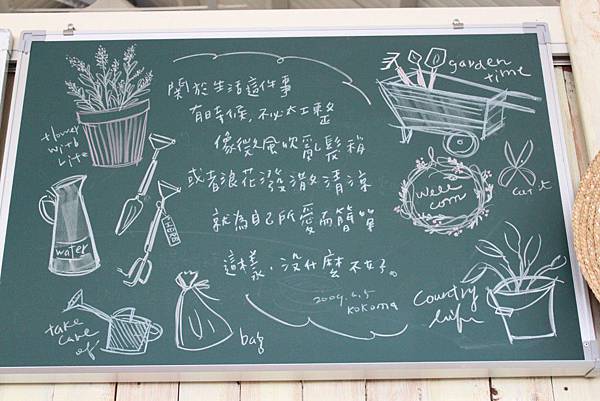 關於生活這件事
有時候,不必太工整
像微風吹亂髮梢
或者浪花潑濺清涼
就為自己所愛而簡單
這樣,沒什麼不好。
2009.6.5
kokoma
flower
with
Life
water
take
care
of
bag
garden
time
well
com
cut it
country
life